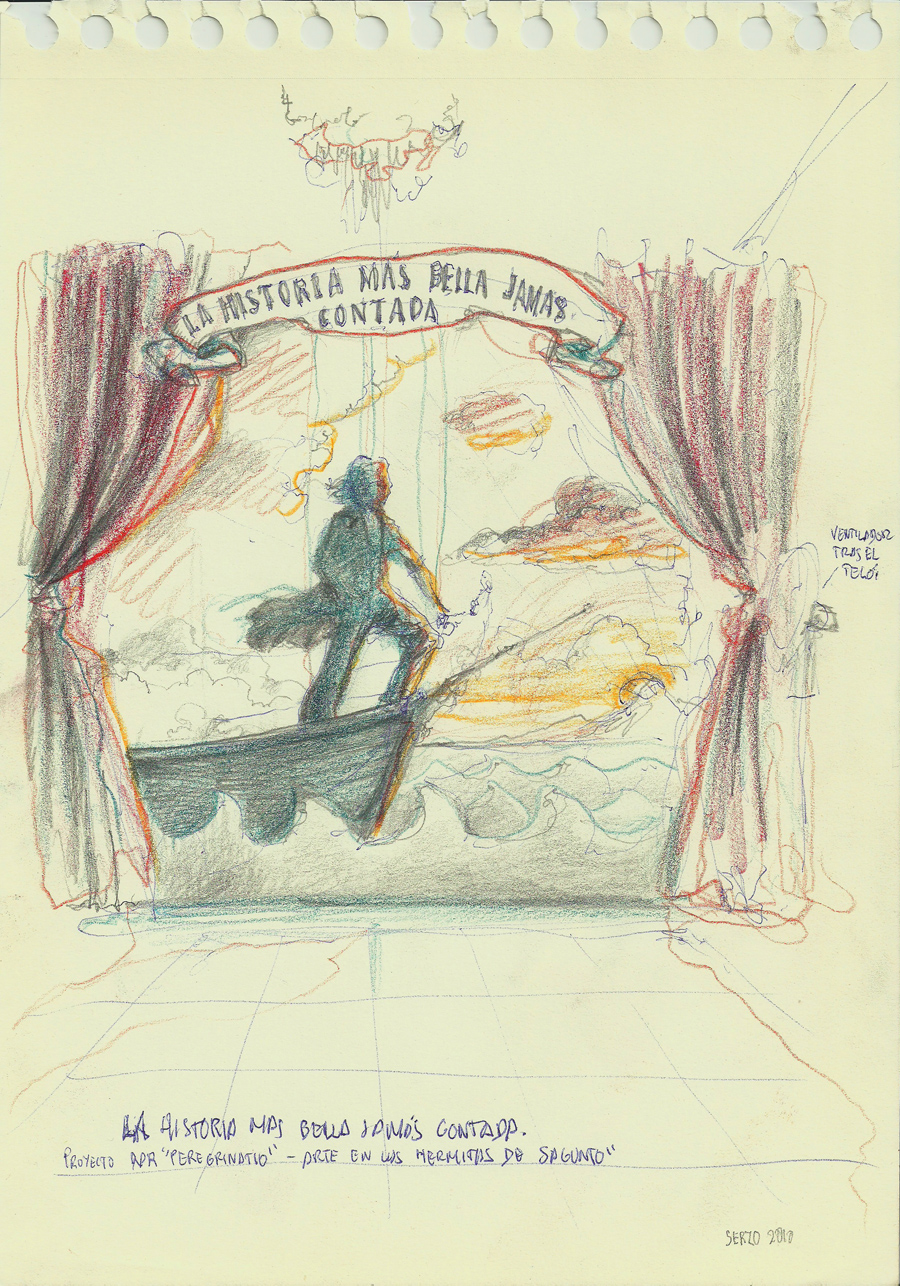 LA HISTORIA MAS BELLA JAMAS
CONTADA
VENTILADOR
TRAS EL
TELÓN
LA HISTORIA MAS BELLA JAMÁS CONTADA.
PROYECTO PARA "PEREGRINATIO" - ARTE EN LAS HERMITAS DE SAGUNTO"
SERZO 2010